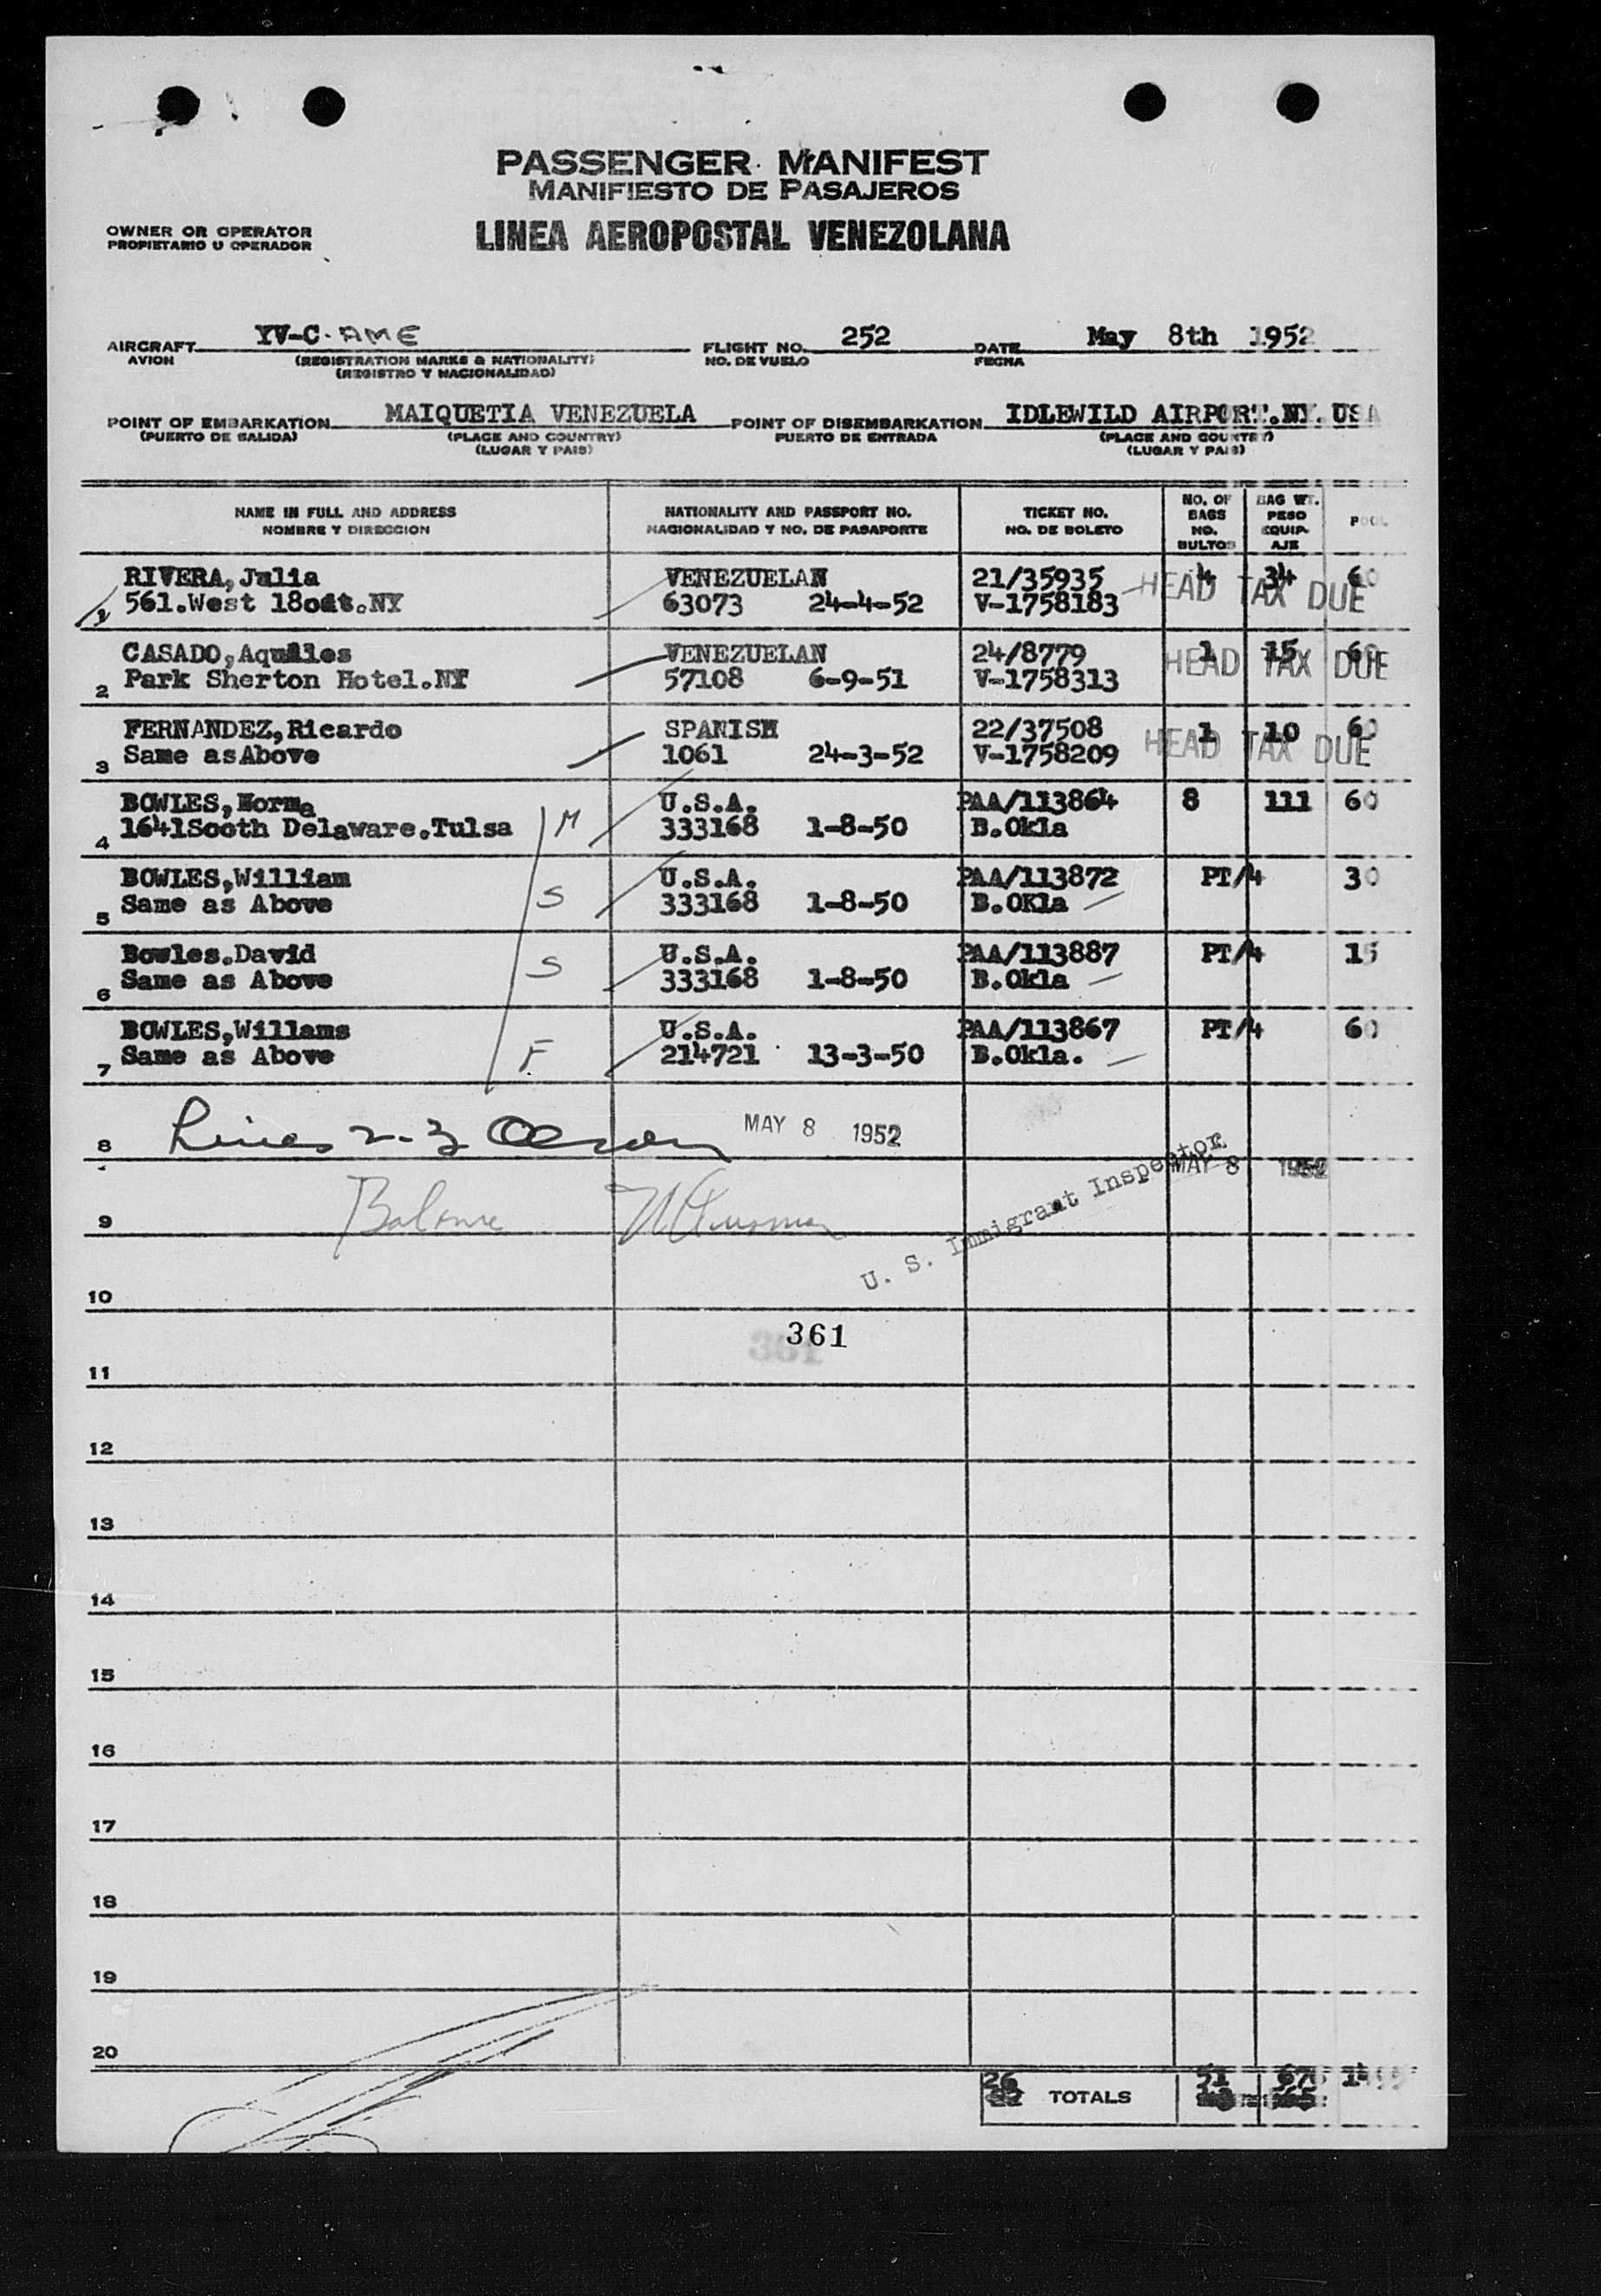 PASSENGER MANIFEST
MANIFIESTO DE PASAJEROS
OWNER OR OPERATOR
PROPIETARIO U OPERADOR
LINEA AEROPOSTAL VENEZOLANA
AIRCRAFT YV-C-AME FLIGHT NO. 252 DATE May 8th 1952
AVION (REGISTRATION MARKS & NATIONALITY) NO. DE VUELO FECHA
(REGISTRO Y NACIONALIDAD)
POINT OF EMBARKATION MAIQUETIA VENEZUELA POINT OF DISEMBARKATION IDLEWILD AIRPORT.NY. USA
(PUERTO DE SALIDA) (PLACE AND COUNTRY) PUERTO DE ENTRADA (PLACE AND COUNTRY)
(LUGAR Y PAIS) (LUGAR Y PAIS)
NAME IN FULL AND ADDRESS NATIONALITY AND PASSPORT NO. TICKET NO. NO. OF BAGS BAG WT. POOL
NOMBRE Y DIRECCION NACIONALIDAD Y NO. DE PASAPORTE NO. DE BOLETO NO. BULTOS PESO EQUIP-AJE
RIVERA, Julia VENEZUELAN 21/35935 4 34 60
561.West 18oSt.NY 63073 24-4-52 V-1758183 HEAD TAX DUE
CASADO, Aquilles VENEZUELAN 24/8779 1 15 60
2 Park Sherton Hotel.NY 57108 6-9-51 V-1758313 HEAD TAX DUE
FERNANDEZ, Ricardo SPANISH 22/37508 1 10 60
3 Same asAbove 1061 24-3-52 V-1758209 HEAD TAX DUE
BOWLES, Norma U.S.A. PAA/113864 8 111 60
4 1641Sooth Delaware.Tulsa M 333168 1-8-50 B.Okla
BOWLES,William U.S.A. PAA/113872 PT/4 30
5 Same as Above S 333168 1-8-50 B.OKla
Bowles.David U.S.A. PAA/113887 PT/4 15
6 Same as Above S 333168 1-8-50 B.Okla
BOWLES,Willams U.S.A. PAA/113867 PT/4 60
7 Same as Above F 214721 13-3-50 B.Okla.
8 Lines 2-3 MAY 8 1952
MAY 8 1952
9 Balance
U. S. Immigrant Inspector
10
361
11
12
13
14
15
16
17
18
19
20
26 TOTALS 51